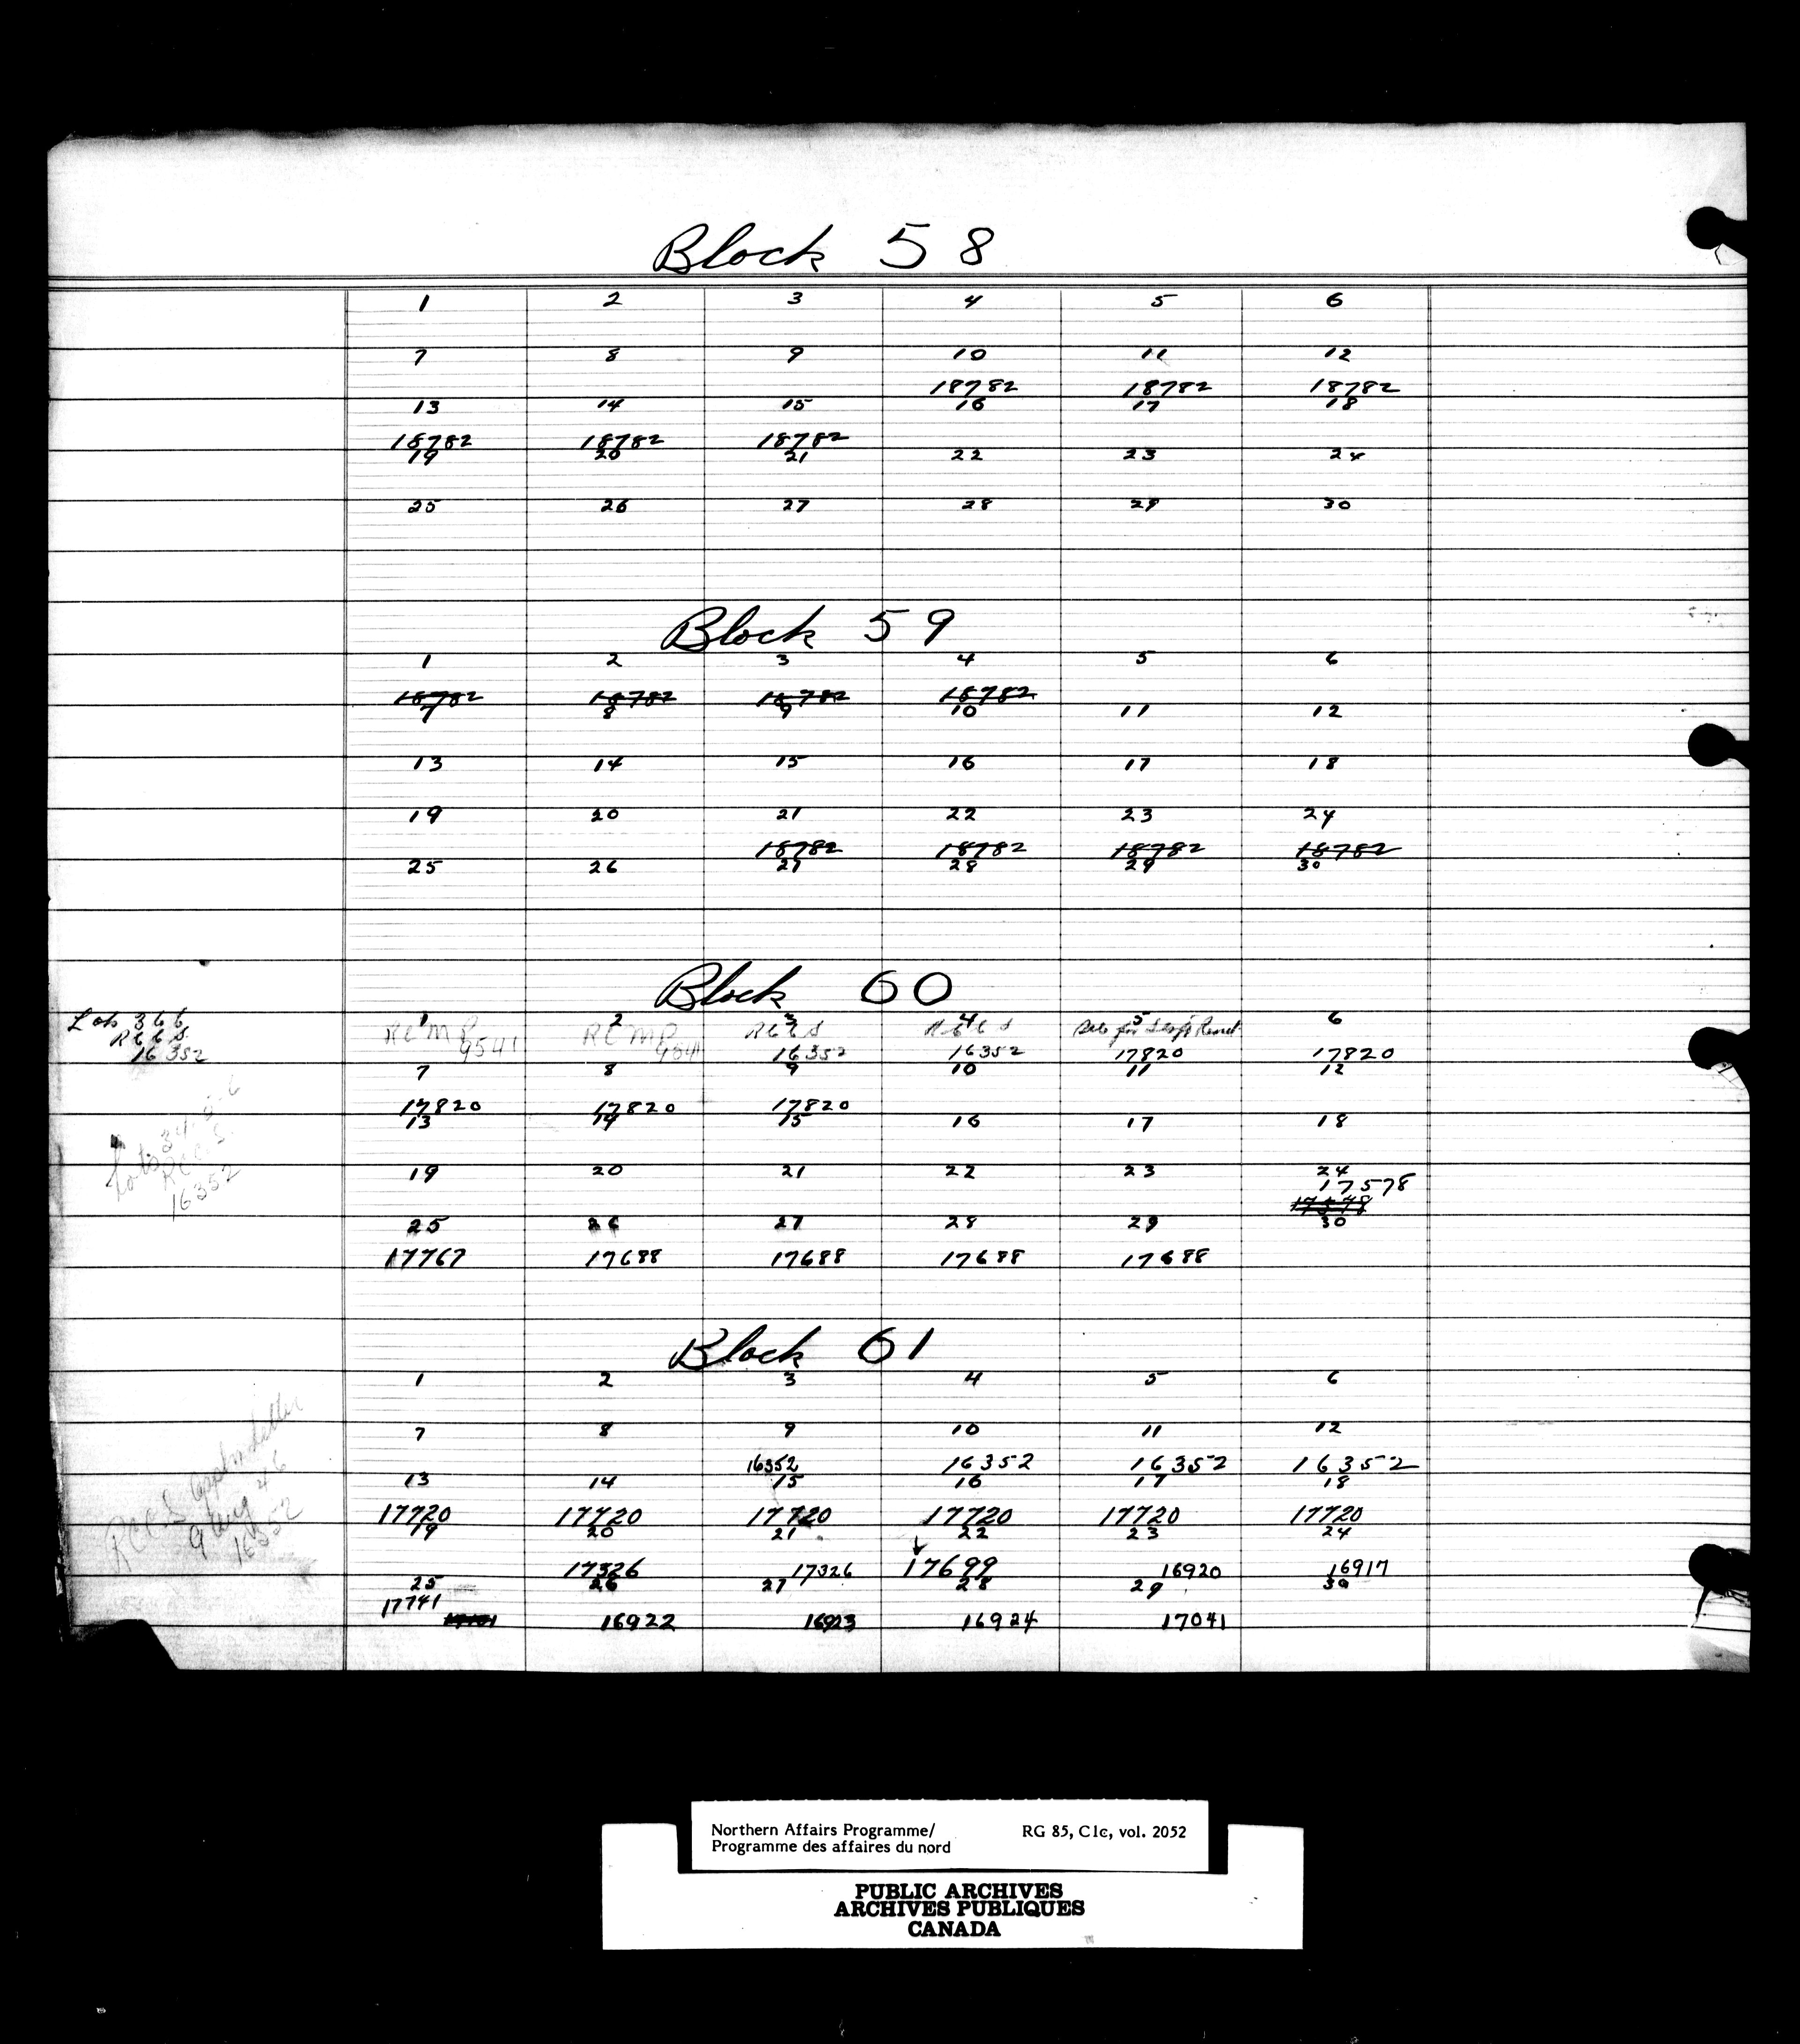 Block 58
1 2 3 4 5 6
7 8 9 10 11 12
18782 18782 18782
13 14 15 16 17 18
18782 18782 18782
19 20 21 22 23 24
25 26 27 28 29 30
Block 59
1 2 3 4 5 6
18782 18782 18782 18782
7 8 9 10 11 12
13 14 15 16 17 18
19 20 21 22 23 24
18782 18782 18782 18782
25 26 27 28 29 30
Block 60
Lots 3 6 6
R C C S
16352
1 2 3 4 5 6
RCMP RCMP RCCS RCCS for
9541 9541 16352 16352 17820 17820
7 8 9 10 11 12
17820 17820 17820
13 14 15 16 17 18
Lots
RCCS
16352
19 20 21 22 23 24
17578
17578
25 26 27 28 29 30
17767 17688 17688 17688 17688
Block 61
1 2 3 4 5 6
7 8 9 10 11 12
16352 16352 16352 16352
13 14 15 16 17 18
17720 17720 17720 17720 17720 17720
RCCS letter
9 Aug 46
16352
19 20 21 22 23 24
17326 17326 17699 16920 16917
25 26 27 28 29 30
17741
16922 16923 16924 17041
Northern Affairs Programme/ RG 85, C1c, vol. 2052
Programme des affaires du nord
PUBLIC ARCHIVES
ARCHIVES PUBLIQUES
CANADA